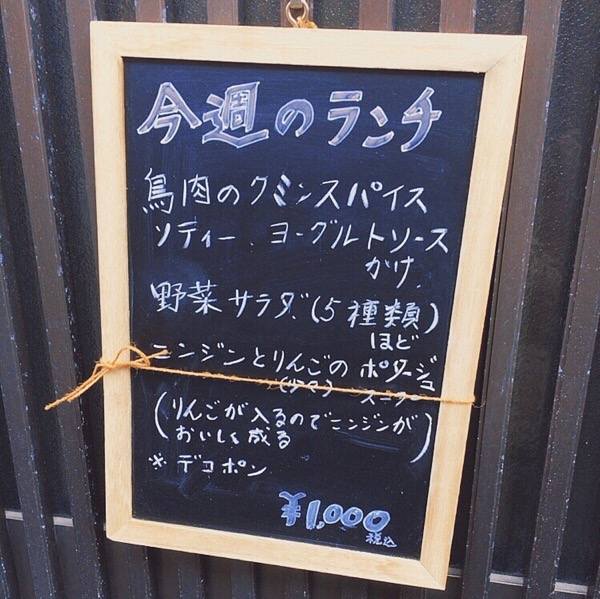 今週のランチ
鳥肉のクミンスパイス
ソティー、ヨーグルトソース
かけ
野菜サラダ(5種類)
ほど
ニンジンとりんごのポタージュ
スープ
(りんごが入るのでニンジンが
おいしく成る)
※デコポン
¥1,000
税込